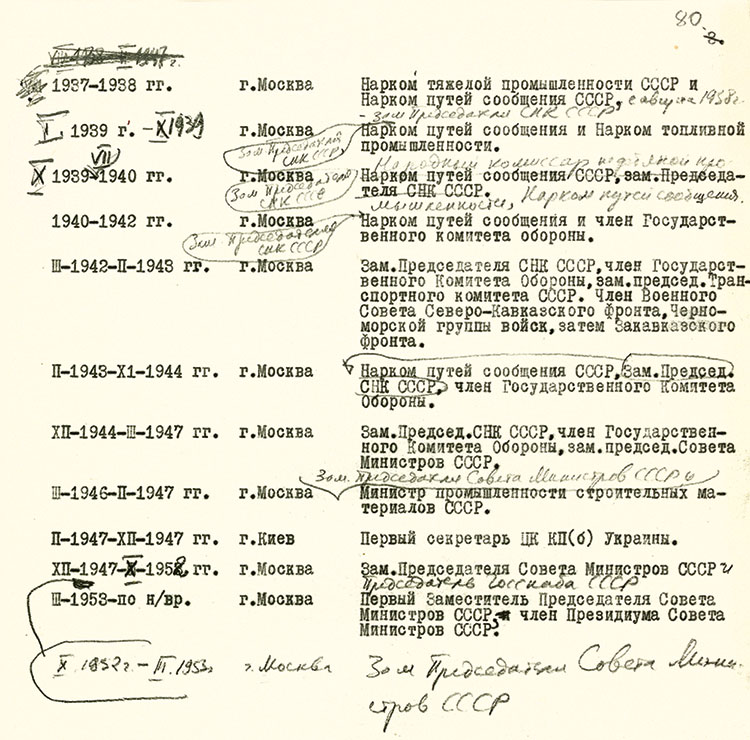 80
1937-1938 гг. г.Москва Нарком тяжелой промышленности СССР и
Нарком путей сообщения СССР, с августа 1938 г.
- зам Председателя СНК СССР
I, 1939 г. - X 1939 г.Москва Нарком путей сообщения и Нарком топливной
промышленности.
Зам Председателя
СНК СССР
Народный комиссар нефтяной про-
X VII
1939-1940 гг. г.Москва Нарком путей сообщения СССР, зам.Председа-
теля СНК СССР.
мышленности, Нарком путей сообщения.
Зам Председателя
СНК СССР
1940-1942 гг. г.Москва Нарком путей сообщения и член Государст-
венного комитета обороны.
Зам Председателя
СНК СССР
Ш-1942-П-1943 гг. г.Москва Зам.Председателя СНК СССР,член Государст-
венного Комитета Обороны,зам.председ.Тран-
спортного комитета СССР. Член Военного
Совета Северо-Кавказского фронта,Черно-
морской группы войск,затем Закавказского
фронта.
П-1943-Х1-1944 гг. г.Москва Нарком путей сообщения СССР,Зам.Председ.
СНК СССР, член Государственного Комитета
Обороны.
ХП-1944-Ш-1947 гг. г.Москва Зам.Председ.СНК СССР,член Государствен-
ного Комитета Обороны,зам.председ.Совета
Министров СССР.
Зам Председателя Совета Министров СССР и
Ш-1946-П-1947 гг. г.Москва Министр промышленности строительных ма-
териалов СССР.
П-1947-ХП-1947 гг. г.Киев Первый секретарь ЦК КП(б) Украины.
ХП-1947-X-1952 гг. г.Москва Зам.Председателя Совета Министров СССР и
Председатель Госснаба СССР
Ш-1953-по н/вр. г.Москва Первый Заместитель Председателя Совета
Министров СССР, член Президиума Совета
Министров СССР.
X. 1952 г. - III. 1953 г. г. Москва Зам Председателя Совета Мини-
стров СССР